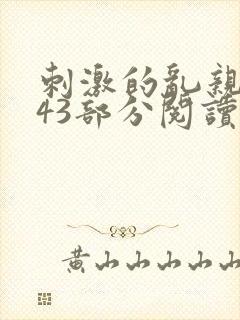 刺激的乱親
43部分閱讀
黄山山山山